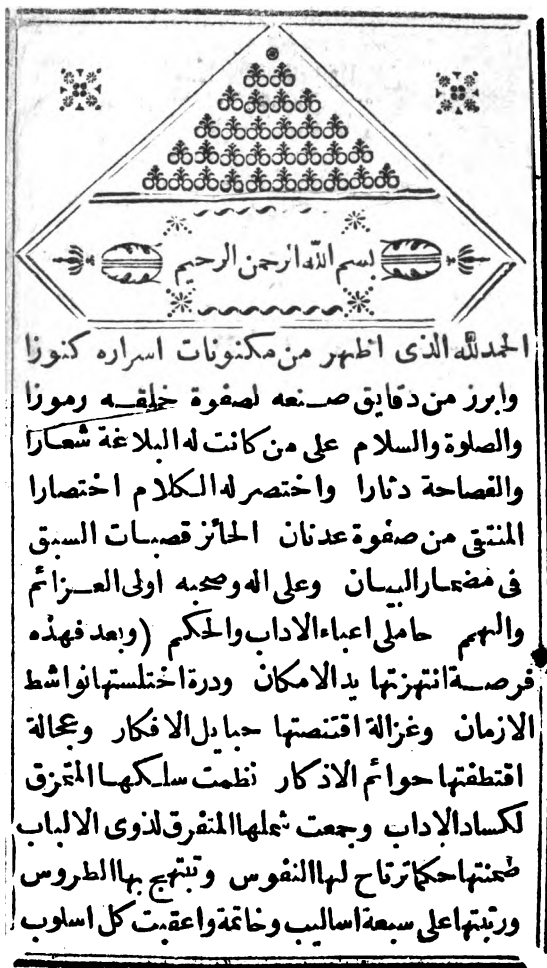 بسم الله الرحمن الرحيم
الحمد لله الذى اظهر من مكنونات اسراره كنوزا
وابرز من دقايق صنعه لصفوة خلقه رموزا
والصلوة والسلام على من كانت له البلاغة شعارا
والفصاحة دثارا واختصر له الكلام اختصارا
المنتقى من صفوة عدنان الحائز قصبات السبق
فى مضمار البيان وعلى اله وصحبه اولى العزائم
والهمم حاملى اعباء الاداب والحكم (وبعد فهذه
فرصة انتهزتها يد الامكان ودرة اختلستها نواشط
الازمان وغزالة اقتنصتها حبايل الافكار وعجالة
اقتطفتها حوائم الاذكار نظمت سلكها المتمزق
لكساد الاداب وجمعت شملها المتفرق لذوى الالباب
ضمنتها حكما ترتاح لها النفوس وتبتهج بها الطروس
ورتبتها على سبعة اساليب وخاتمة واعقبت كل اسلوب